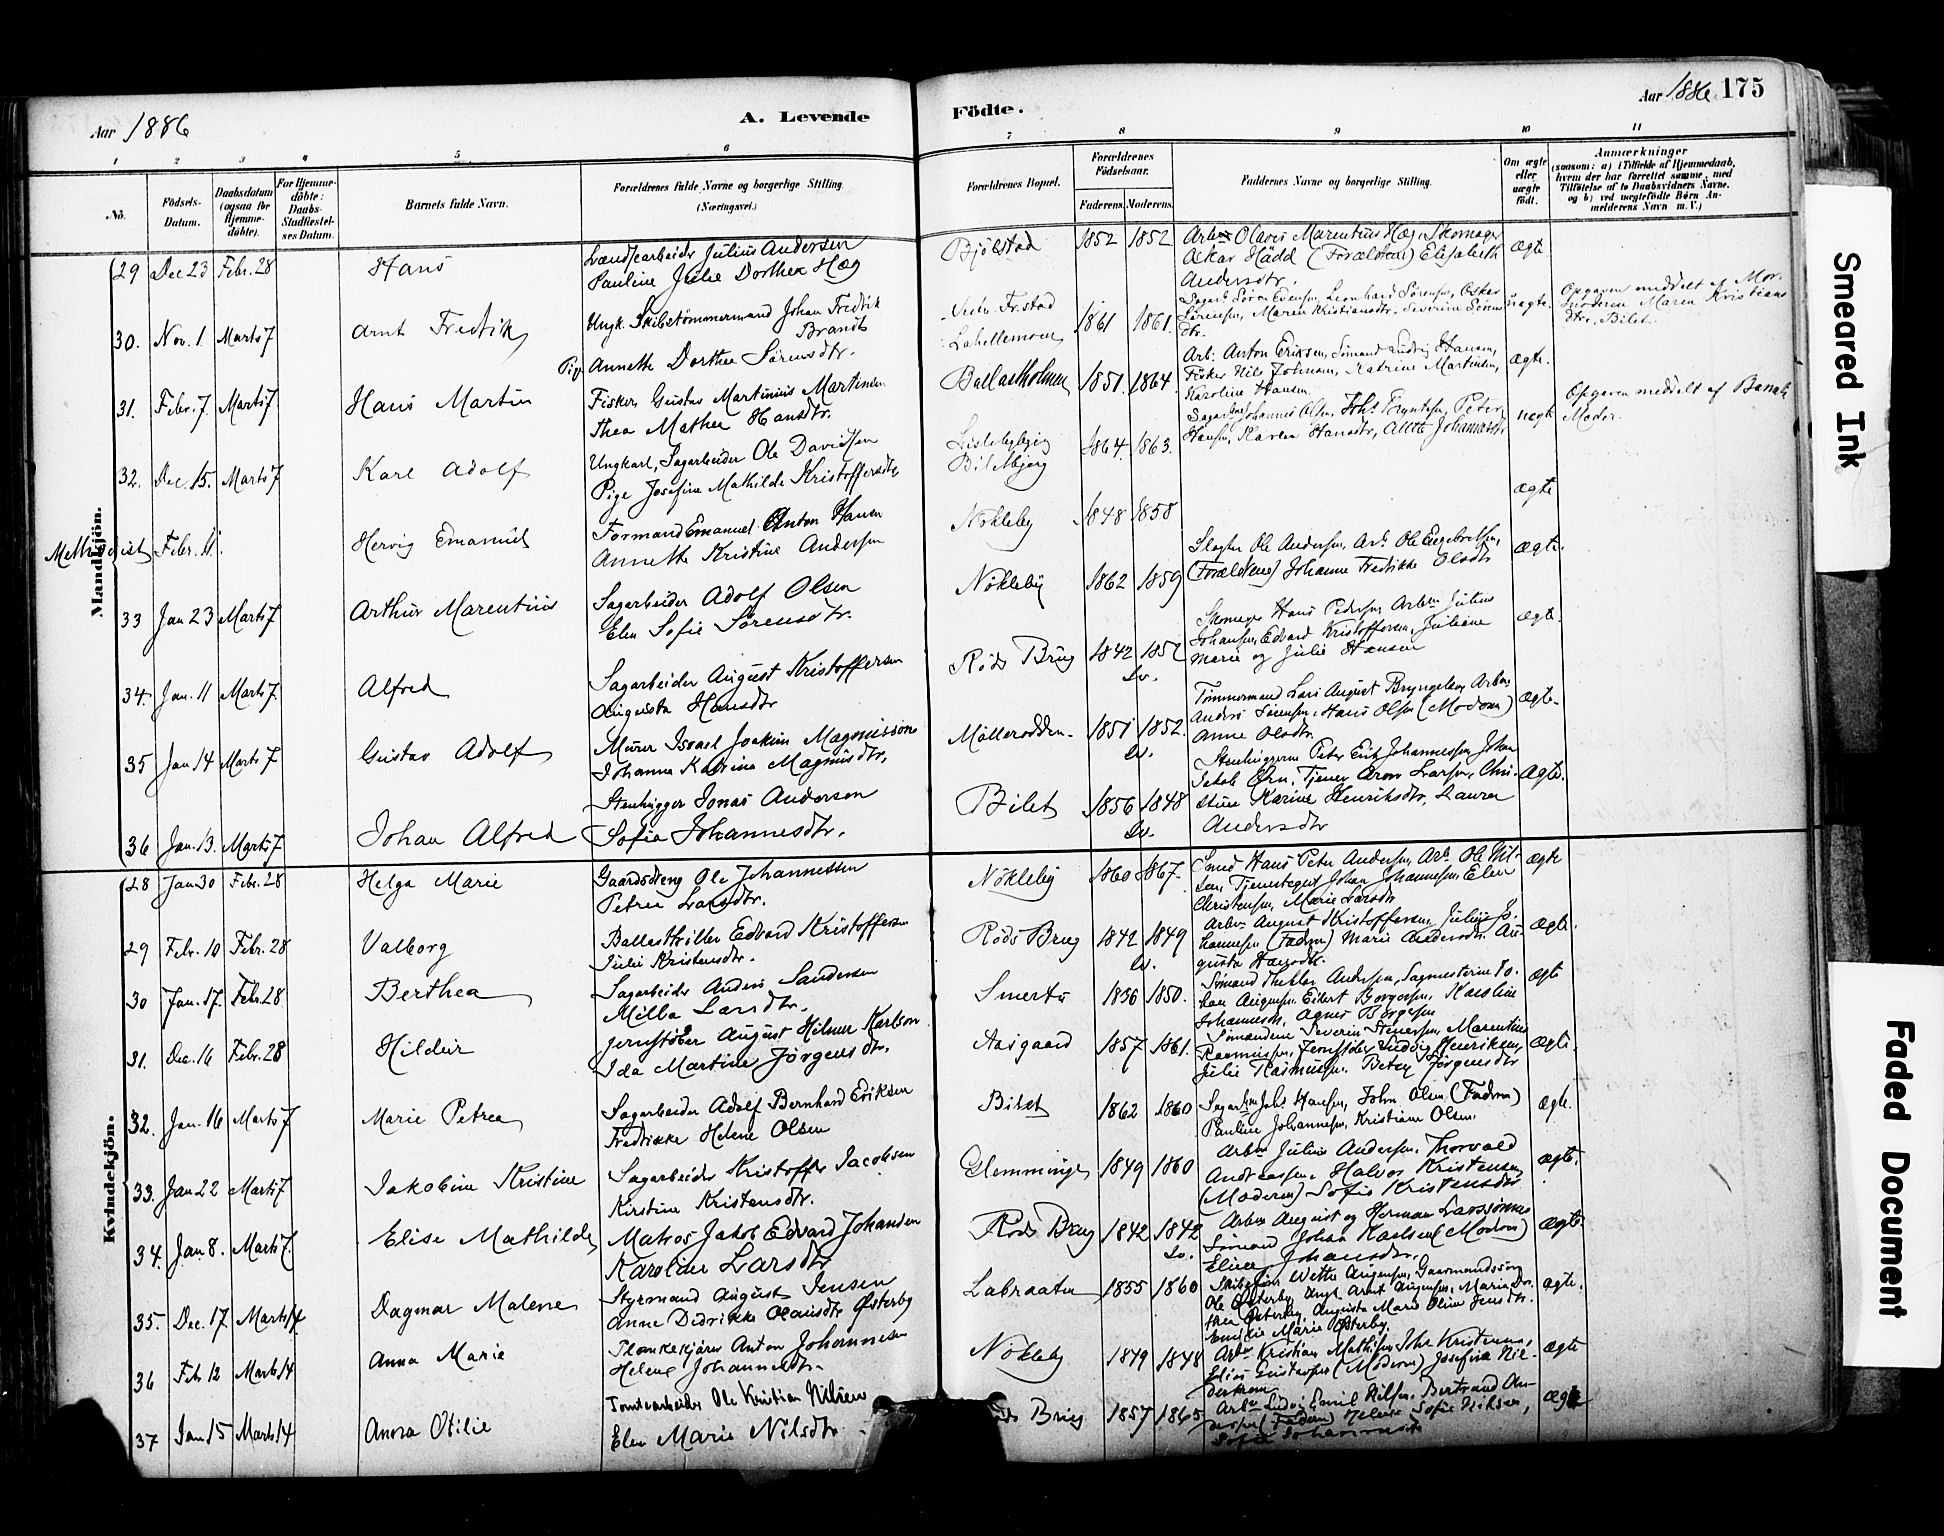 Aar 1886
A. Levende
Födte.
Aar 1886 175
1 2 3 4 5 6 7 8 9 10 11
No.
Födsels-Datum.
Daabsdatum (ogsaa for Hjemme-döbte).
For Hjemme-döbte: Daabs-Stadfæstel-ses Datum.
Barnets fulde Navn.
Forældrenes fulde Navne og borgerlige Stilling. (Næringsvei.)
Forældrenes Bopæl.
Forældrenes Födselsaar.
Faderens. Moderens.
Faddernes Navne og borgerlige Stilling.
Om ægte eller uægte født.
Anmærkninger
(saasom: a) i Tilfælde af Hjemmedaab, hvem der har forrettet samme, med Tilföielse af to Daabsvidners Navne, og b) ved uægtefödte Börn An-melderens Navn m. V.)
Mandkjön.
29 Dec 23 Febr. 28 Hans
Julius Andersen
Pauline Julie Dorthea Hæg
Bjölstad 1852 1852
Olavus Marentius Hæg, Skomager
Oskar (Forældrene) Elisabeth
Andersdtr.
ægte
30. Nov. 1 Marts 7 Arnt Fredrik
Ungk. Skibstömmermand Johan Fredrik
Brandt
Pig. Annette Dorthea Sörensdtr.
Fr.stad
Lahellemoen 1861 1861.
Maren Kristiansdtr. Severine
uægte.
Opgaven meddelt af Mor-
moderen Maren Kristians
dtr, Bilet.
31. Febr. 7. Marts 7 Hans Martin
Fisker Gustav Martinius Martinsen
Thea Mathea Hansdtr.
Ballastholmen 1851. 1864.
Arb. Anton Eriksen, Sömand Ludvig Hansen,
Fisker Nils Johnsen, Katrine Martinsen,
Karoline Hansen.
ægte.
32. Dec. 15. Marts 7 Karl Adolf
Ungkarl, Sagarbeider Ole Davidsen
Pige Josefine Mathilde Kristoffersdtr
Biletbjerg 1864. 1863.
Johannes Olsen, Peter
Hansen, Karen Hansdtr,
uægte
Opgaven meddelt af Barnets
Moder.
Methodist Febr. 11. Hervig Emanuel
Formand Emanuel Anton Hansen
Annette Kristine Andersen
Nökleby 1848 1858
ægte
33 Jan 23 Marts 7 Arthur Marentius
Sagarbeider Adolf Olsen
Elen Sofie Sörensdtr.
Nökleby 1862 1859
Ole Andersen, Arb. Ole Engebretsen,
(Forældrene) Johanne Fredrikke Olsdtr
ægte.
34. Jan. 11 Marts 7. Alfred
Sagarbeider August Kristoffersen
Augusta Hansdtr
Röds Brug 1842 1852
Sv.
Skomager Hans Pedersen, Arbm Julius
Johansen, Edvard Kristoffersen, Juliane
Marie og Julie Hansen
ægte.
35 Jan 14 Marts 7 Gustav Adolf
Murer Israel Joakim Magnusson
Johanna Katrina Magnusdtr.
Mölleroddn. 1851 1852.
Sv.
Tömmermand Lars August Bryngelsen, Arbm.
Anders Sörensen, Hans Olsen (Moderen)
Anne Olsdtr.
ægte.
36 Jan. 13. Marts 7 Johan Alfred
Stenhugger Jonas Anderson
Sofia Johannesdtr.
Bilet 1856 1848
Sv.
Stenhuggerne Peter Erik Johannesen, Johan
Jakob Örn, Tjener Aron Larsen, Chri-
stine Karine Henriksdtr, Laura
Andersdtr
ægte.
Kvindekjön.
28 Jan 30 Febr. 28 Helga Marie
Gaardsdreng Ole Johannessen
Petrea Larsdtr.
Nökleby 1860 1867.
Smed Hans Peter Andersen, Arb. Ole Nil-
sen, Johan Johannesen, Elen
Christensen, Marie Larsdtr
ægte
29 Febr. 10 Febr. 28 Valborg
Edvard Kristoffersen
Julie Kristensdtr.
Röds Brug 1842 1849
Sv.
Arbm August Kristoffersen, Julius Jo-
hannesen (Faderen) Marie Andersdtr. Au-
gusta Hansdtr.
ægte.
30 Jan. 17. Febr. 28. Berthea
Sagarbeider Anders Sandersen
Milla Larsdtr.
Smertu 1856 1850.
Sömand Andersen, Sagmesterne Jo-
han Augusen, Eilert Borgersen, Karoline
Johannesdtr, Agnes Borgesen
ægte
31. Dec. 16 Febr. 28 Hildur
Jernstöber August Hilmer Karlson
Ida Martine Jörgensdtr.
Aasgaard 1857 1861.
Sömændene Severin Stenersen, Marentius
Rasmussen, Jernstöber Ludvig Henriksen,
Julie Rasmussen, Betzy Jörgensdtr
ægte.
32. Jan. 16 Marts 7 Marie Petrea
Sagarbeider Adolf Bernhard Eriksen
Fredrikke Helene Olsen
Bilet 1862 1860
Johs Hansen, John Olsen (Faderen)
Pauline Johannesen, Kristiane Olsen.
ægte.
33. Jan 22 Marts 7 Jakobine Kristine
Sagarbeider Kristoffer Jacobsen
Kirstine Kristensdtr.
Glemminge 1849 1860
Arbm Julius Andersen, Thorvald
Andreasen, Halvor Kristensen,
(Moderen) Sofie Kristensdtr
ægte.
34. Jan 8. Marts 7. Elise Mathilde
Matros Jakob Edvard Johansen
Karoline Larsdtr
Röds Brug 1842 1842
Sv.
Arbm August og Herman Larssönner
Sömand Johan Karlsen (Moderen)
Elise Johansdtr.
ægte.
35. Dec. 17 Marts 14 Dagmar Malene
Styrmand August Jensen
Anne Didrikke Olausdtr Österby
Labraaten 1855 1860
Augusta Marie Oline Jensdtr.
Emilie Marie Österby.
ægte.
36 Feb 12 Marts 14 Anna Marie
Plankekjörer Anton Johannesen
Helene Johannesdtr.
Nökleby 1849 1848
Arbm Kristian Mathisen, Johs Kristensen,
Elias Gustavsen (Moderen) Josefine Nil-
ægte
37 Jan 15 Marts 14 Anna Otilie
Tomtearbeider Ole Kristian Nilsen
Elen Marie Nilsdtr.
Brug 1857 1865
Emil Nilsen, Bertrand An-
(Faderen) Helene Sofie
ægte
Smeared Ink
Faded Document